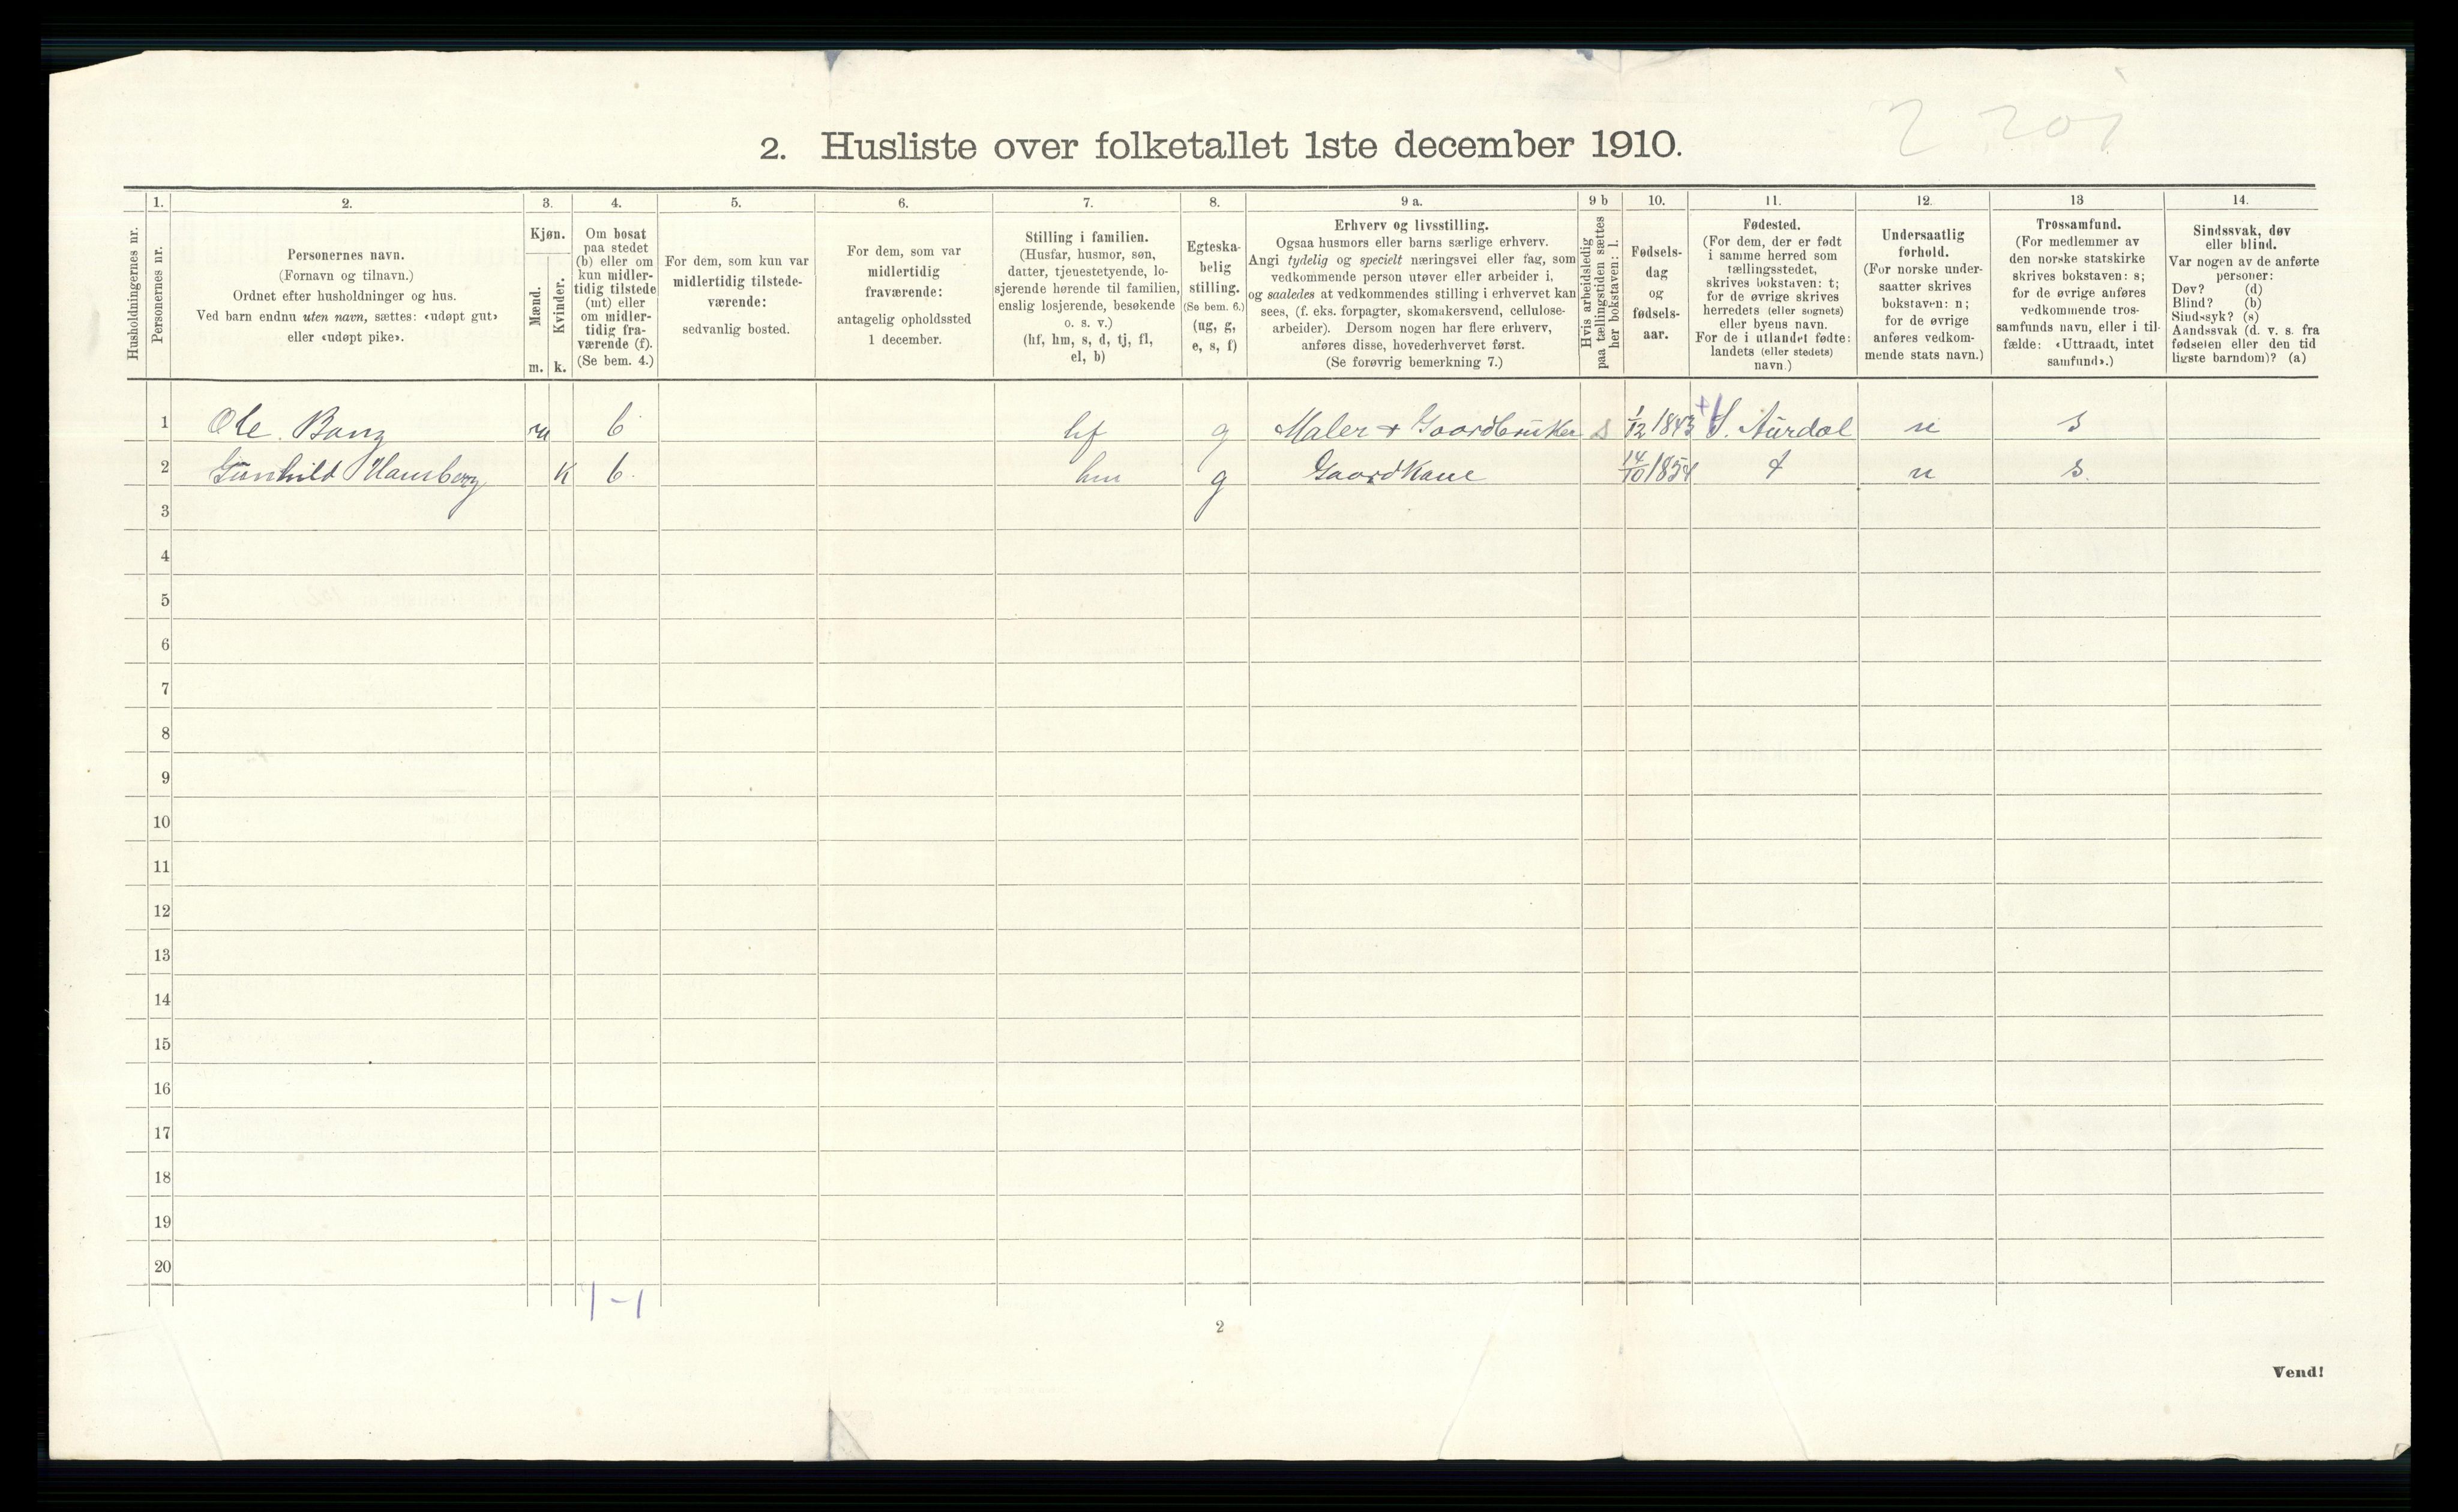 2. Husliste over folketallet 1ste december 1910.
Husholdningernes nr.
1.
Personernes nr.
2.
Personernes navn.
(Fornavn og tilnavn.)
Ordnet efter husholdninger og hus.
Ved barn endnu uten navn, sættes: «udøpt gut»
eller «udøpt pike».
3.
Kjøn.
Mænd.
Kvinder.
m. k.
4.
Om bosat
paa stedet
(b) eller om
kun midler-
tidig tilstede
(mt) eller
om midler-
tidig fra-
værende (f).
(Se bem. 4.)
5.
For dem, som kun var
midlertidig tilstede-
værende:
sedvanlig bosted.
6.
For dem, som var
midlertidig
fraværende:
antagelig opholdssted
1 december.
7.
Stilling i familien.
(Husfar, husmor, søn,
datter, tjenestetyende, lo-
sjerende hørende til familien,
enslig losjerende, besøkende
o. s. v.)
(hf, hm, s, d, tj, fl,
el, b)
8.
Egteska-
belig
stilling.
(Se bem. 6.)
(ug, g,
e, s, f)
9 a.
Erhverv og livsstilling.
Ogsaa husmors eller barns særlige erhverv.
Angi tydelig og specielt næringsvei eller fag, som
vedkommende person utøver eller arbeider i,
og saaledes at vedkommendes stilling i erhvervet kan
sees, (f. eks. forpagter, skomakersvend, cellulose-
arbeider). Dersom nogen har flere erhverv,
anføres disse, hovederhvervet først.
(Se forøvrig bemerkning 7.)
9 b
Hvis arbeidsledig
paa tællingstiden sættes
her bokstaven: l.
10.
Fødsels-
dag
og
fødsels-
aar.
11.
Fødested.
(For dem, der er født
i samme herred som
tællingsstedet,
skrives bokstaven: t;
for de øvrige skrives
herredets (eller sognets)
eller byens navn.
For de i utlandet fødte:
landets (eller stedets)
navn.)
12.
Undersaatlig
forhold.
(For norske under-
saatter skrives
bokstaven: n;
for de øvrige
anføres vedkom-
mende stats navn.)
13
Trossamfund.
(For medlemmer av
den norske statskirke
skrives bokstaven: s;
for de øvrige anføres
vedkommende tros-
samfunds navn, eller i til-
fælde: «Uttraadt, intet
samfund».)
14.
Sindssvak, døv
eller blind.
Var nogen av de anførte
personer:
Døv? (d)
Blind? (b)
Sindssyk? (s)
Aandssvak (d. v. s. fra
fødselen eller den tid
ligste barndom)? (a)
1 Ole. Bang m b hf g Maler + Gaardbruker s 1/12 1843 S. Aurdal n s
2 Gunhild Hamsberg k b. hm g Gaardkone 14/10 1854 t n s.
3
4
5
6
7
8
9
10
11
12
13
14
15
16
17
18
19
20
1-1
2
Vend!